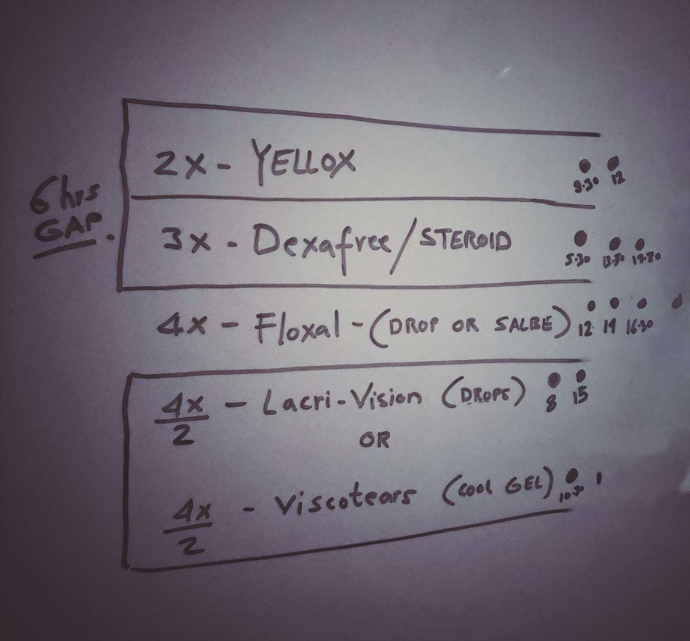 2x - YELLOX
9.30 12
6 hrs GAP.
3x - Dexafree/STEROID
5.30 13.30 19.30
4x - Floxal - (DROP OR SALBE)
12 19 16.30
4x/2 - Lacri-Vision (DROPS)
8 15
OR
4x/2 - Viscotears (COOL GEL)
10.30